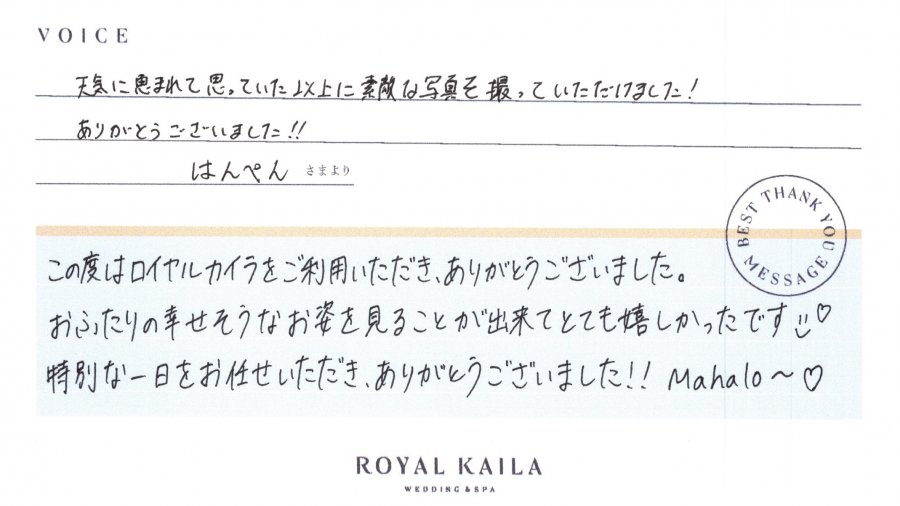 VOICE
天気に恵まれて思っていた以上に素敵な写真を撮っていただけました!
ありがとうございました!!
はんぺん さまより
BEST THANK YOU MESSAGE
この度はロイヤルカイラをご利用いただき、ありがとうございました。
おふたりの幸せそうなお姿を見ることが出来てとても嬉しかったです♡
特別な一日をお任せいただき、ありがとうございました!! Mahalo~♡
ROYAL KAILA
WEDDING & SPA